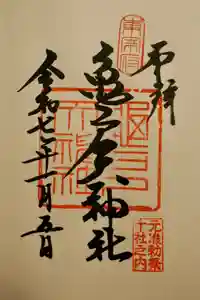 奉拝
東宰府
亀戸天神社
元准勅祭
十社之内
令和七年一月五日